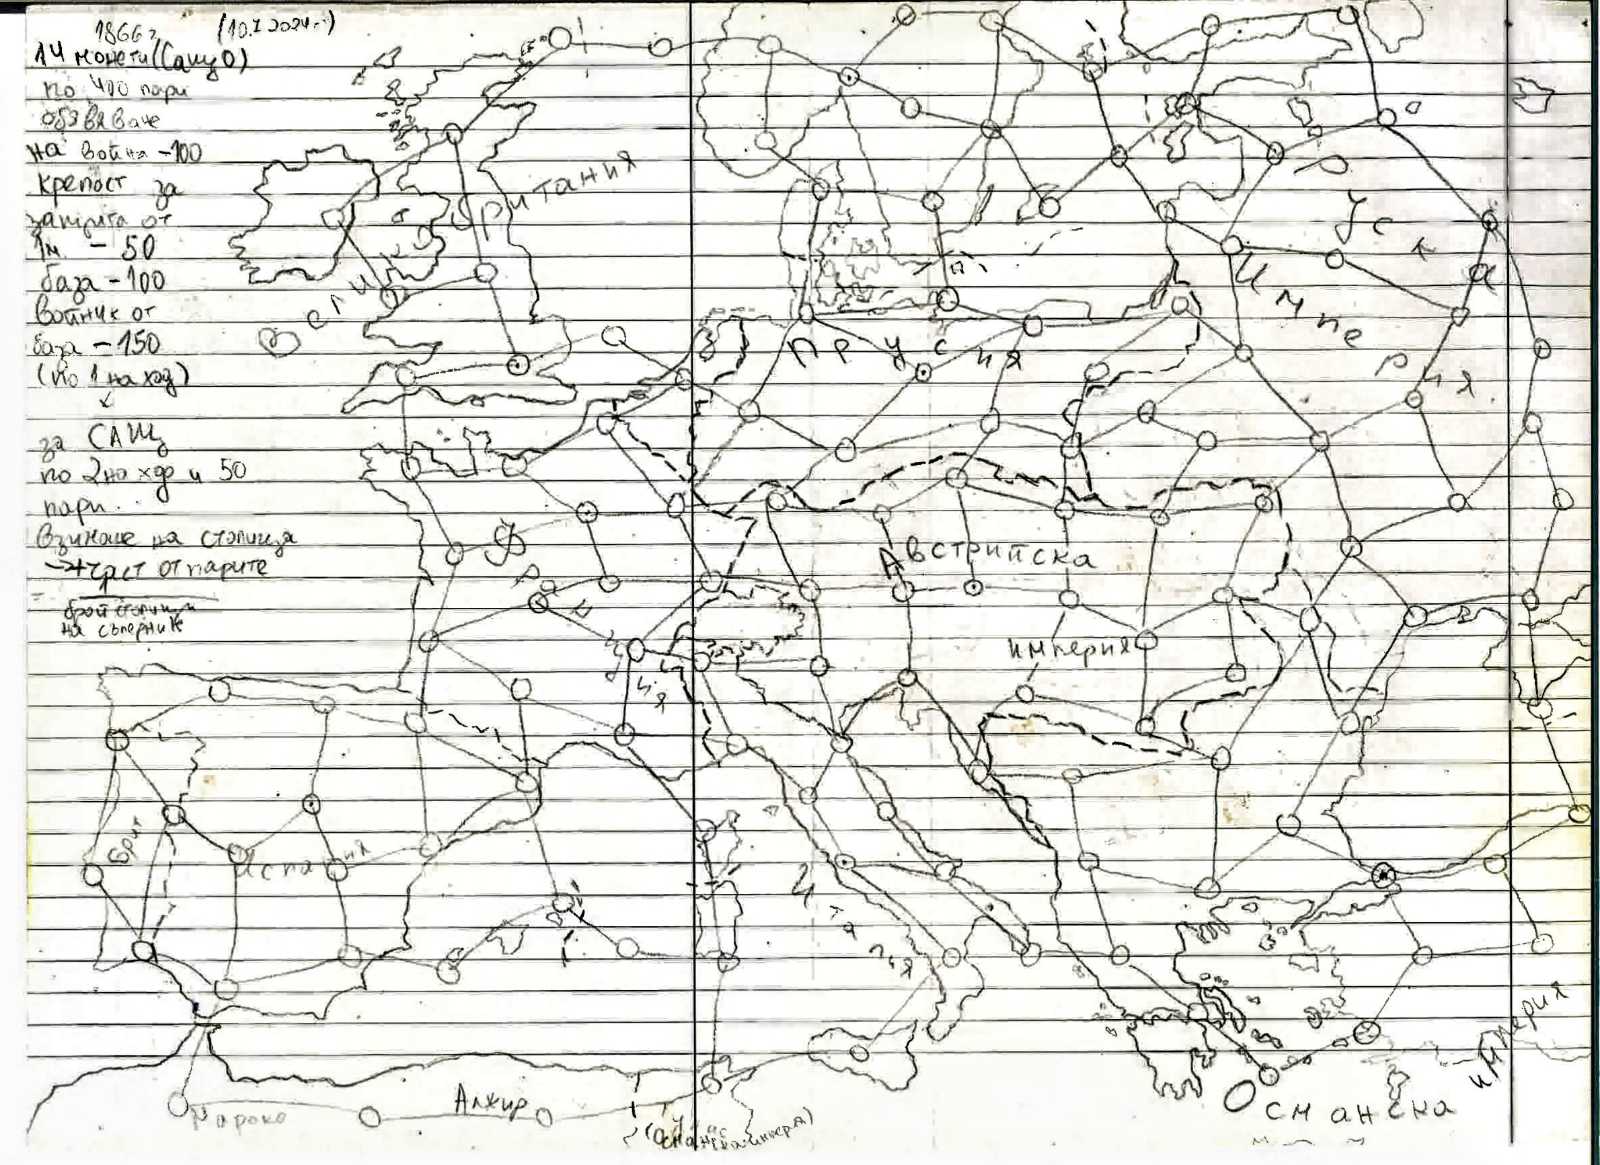 1866г (10.I 2024г.)
14 монети (Сащ 0)
по 400 пари
обявяване
на война -100
крепост за
защита от
1м - 50
база -100
войник от
база -150
(по 1 на ход)
за САЩ
по 2 на ход и 50
пари.
Взимане на столица
→ + част от парите
1
брой столици
на съперник
Великобритания
Руска
империя
Прусия
Франция
Австрийска
империя
Брит
Испания
Италия
Османска
империя
Мароко
Алжир
(Османска империя)